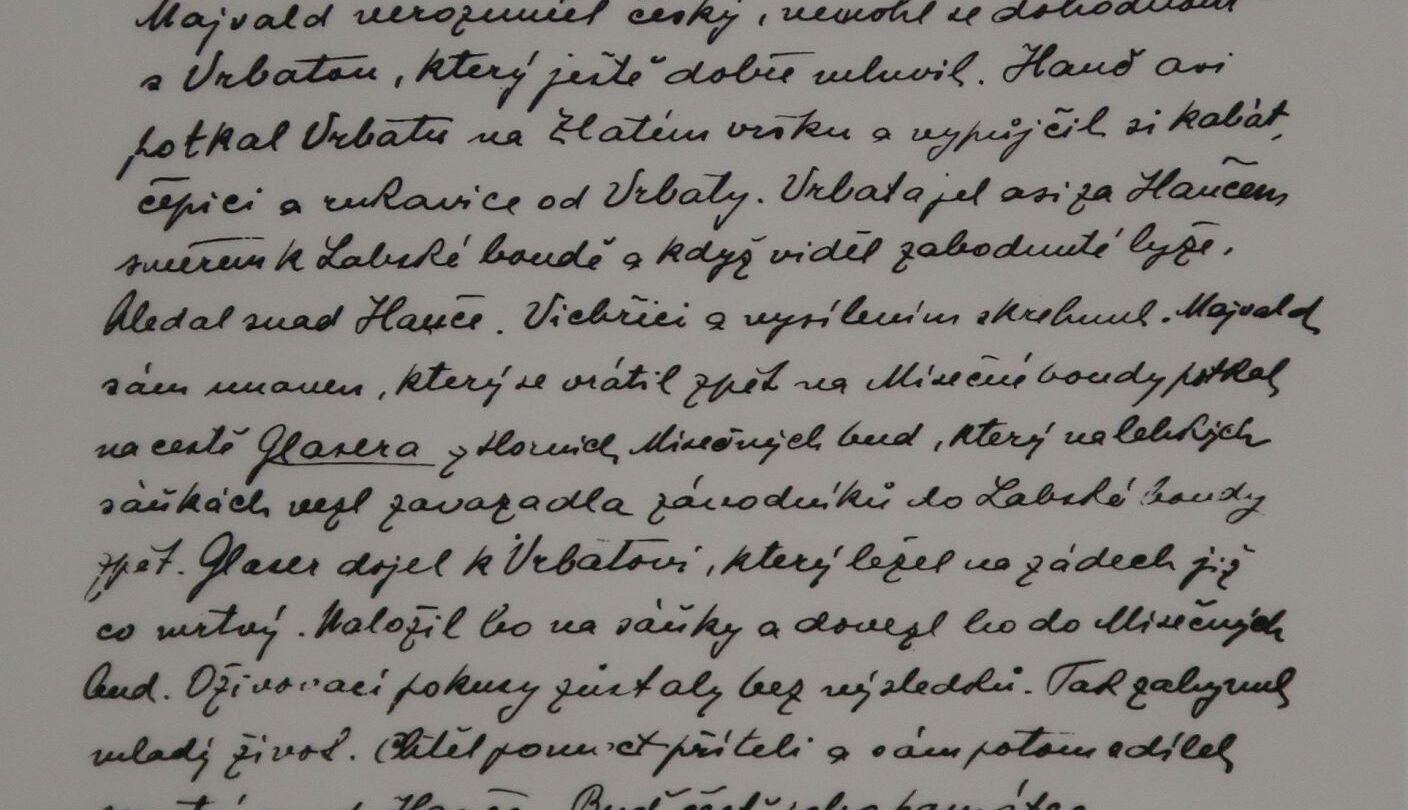 Majvald nerozuměl česky, nemohl se dohodnout
s Vrbatou, který ještě dobře mluvil. Hanč asi
potkal Vrbatu na Zlatém vršku a vypůjčil si kabát,
čepici a rukavice od Vrbaty. Vrbata jel asi za Hančem
směrem k Labské boudě a když viděl zabodnuté lyže,
hledal snad Hanče. Vichřicí a vysílením skrehnul. Majvald
sám unaven, který se vrátil zpět na Mísečné boudy potkal
na cestě Glasera z Horních Mísečných bud, který na lehkých
sáňkách vezl zavazadla závodníků do Labské boudy
zpět. Glaser dojel k Vrbatovi, který ležel na zádech již
co mrtvý. Naložil ho na sáňky a dovezl ho do Mísečných
bud. Oživovací pokusy zůstaly bez výsledků. Tak zahynul
mladý život. Chtěl pomoct příteli a sám potom sdílel
Hanče. Buď čest jeho památce